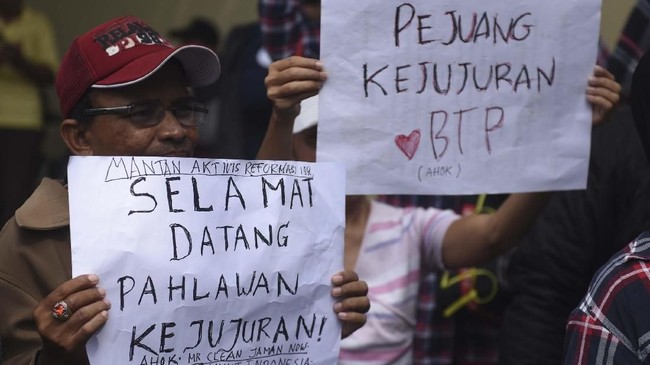 PEJUANG
KEJUJURAN
BTP
(AHOK)
MANTAN AKTIVIS REFORMASI 1998
SELAMAT
DATANG
PAHLAWAN
KEJUJURAN!
AHOK. MR CLEAN JAMAN NOW.
INDONESIA